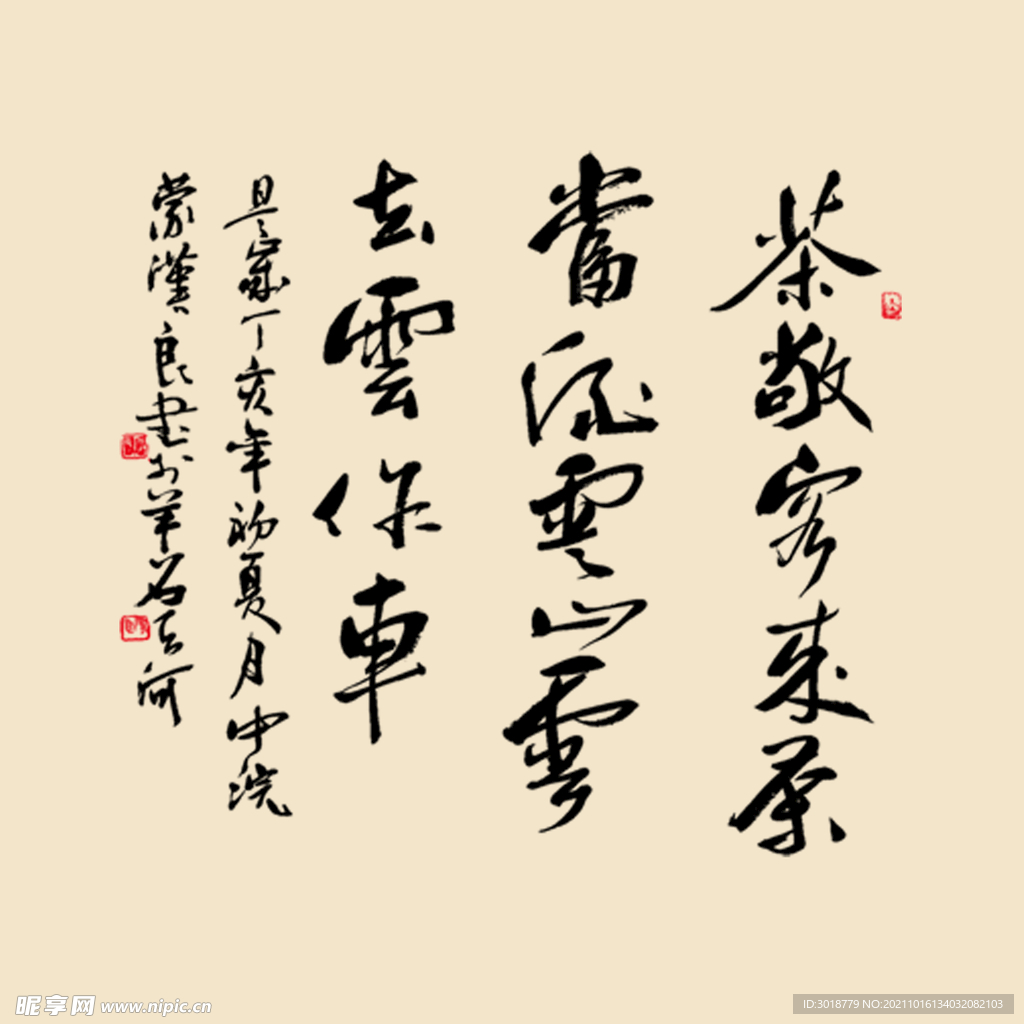 茶敬客來茶
當流雲山雲
去雲作車
是歲丁亥年初夏月中浣
蒙漢良書於羊石天河
昵享网 www.nipic.cn
ID:3018779 NO:20211016134032082103